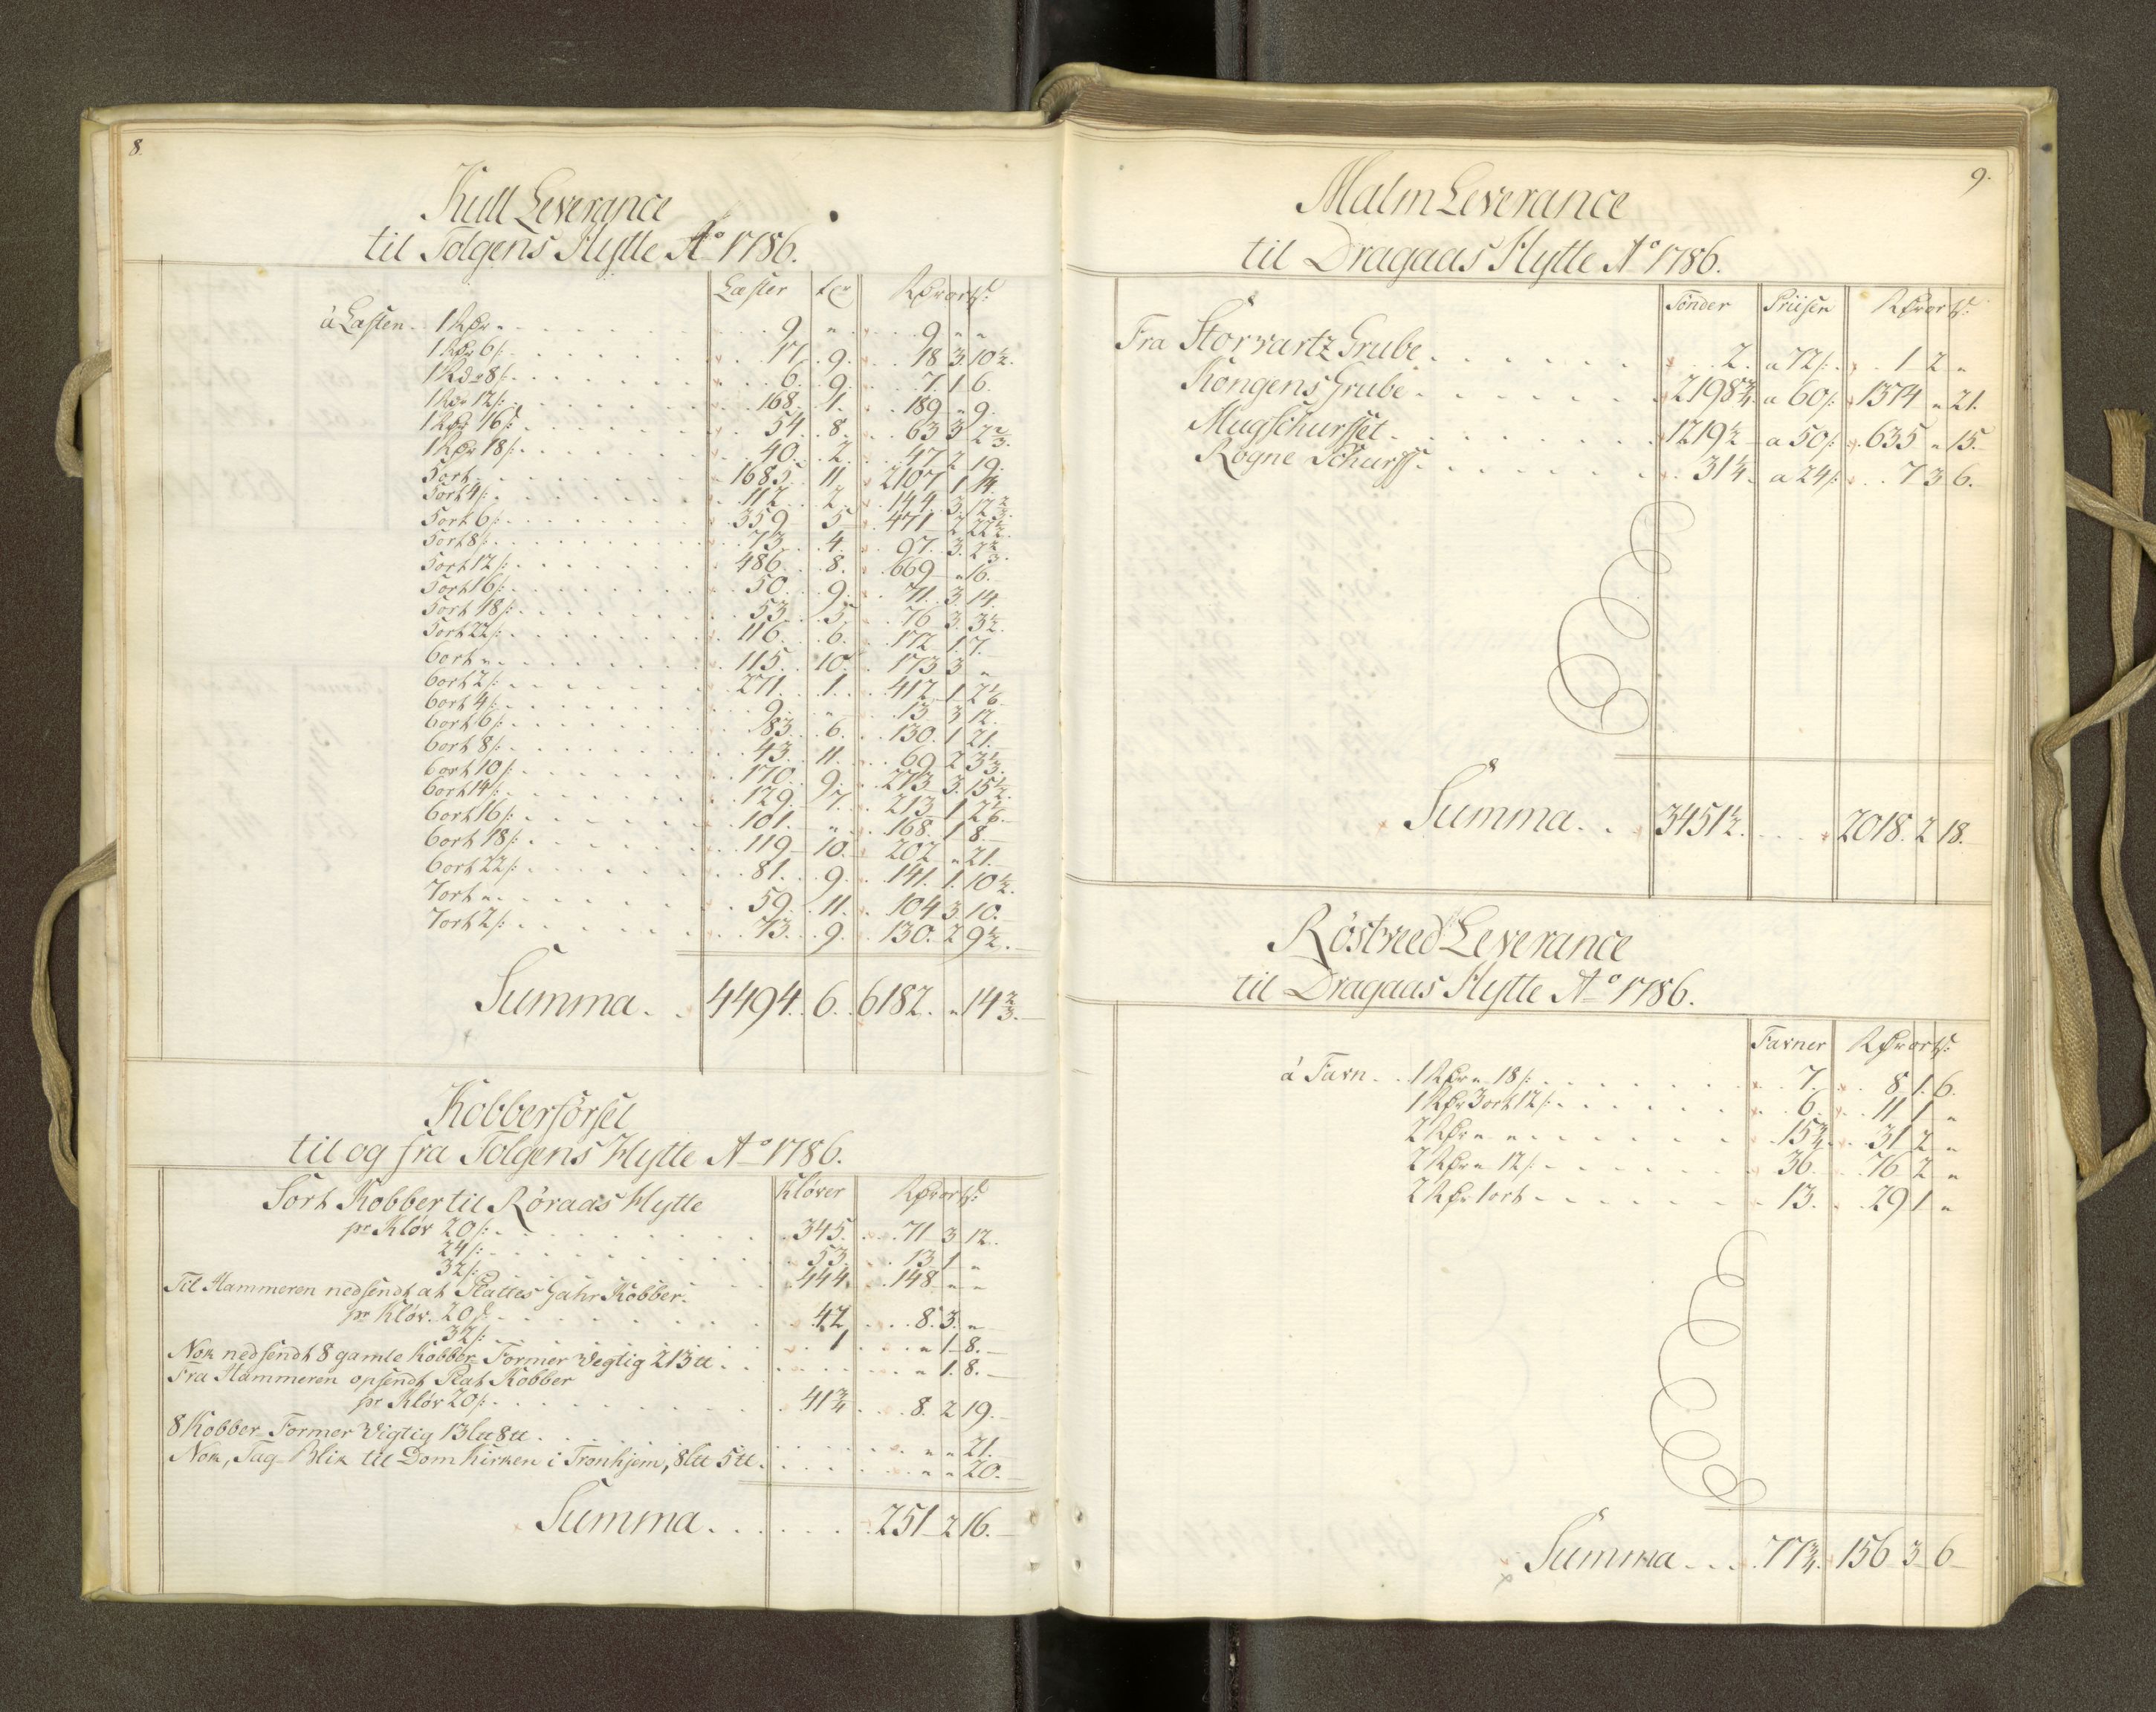 8.
Kull Leverance
til Tolgens Hytte Aº 1786.
Læster tr Rdr ort ß:
á Læsten. 1 Rdr „ 9. „ 9 „ „
1 Rdr 6 ß: 17. 9. 18 3 10½.
1 Rdr 8 ß: 6. 9. 7. 1 6.
1 Rdr 12 ß: 168. 1. 189 „ 9.
1 Rdr 16 ß: 54. 8. 63 3 2⅔.
1 Rdr 18 ß: 40. 2. 47 2 19.
5 ort 1685. 11 2107 1 14.
5 ort 4 ß: 112 2. 144 3 12⅔.
5 ort 6 ß: 359 5 471 2 22½.
5 ort 8 ß: 73. 4. 97. 3. 2⅔.
5 ort 12 ß: 486. 8. 669 „ 16.
5 ort 16 ß: 50. 9. 71. 3 14.
5 ort 18 ß: 53. 5 76 3. 3½.
5 ort 22 ß: 116. 6. 172 1. 7.
6 ort „ 115. 10. 173 3 „
6 ort 2 ß: 271. 1. 412 1 2⅙
6 ort 4 ß: 9. „ 13 3 12.
6 ort 6 ß: 83. 6. 130. 1 21.
6 ort 8 ß: 43. 11. 69 2 3⅓.
6 ort 10 ß: 170. 9. 273 3. 15½.
6 ort 14 ß: 129. 7. 213 1 2⅙.
6 ort 16 ß: 101. „ 168. 1 8.
6 ort 18 ß: 119 10. 202 „ 21.
6 ort 22 ß: 81. 9. 141. 1. 10½.
7 ort „ 59. 11. 104 3. 10.
7 ort 2 ß: 73. 9. 130. 2 9½.
Summa 4494. 6. 6182. „ 14⅔.
Kobberförsel
til og fra Tolgens Hytte Aº 1786.
Sort Kobber til Röraas Hytte Klöver Rdr ort ß:
pr Klöv 20 ß: 345. 71 3 12.
24 ß: 53. 13 1 „
32 ß: 444. 148 „ „
Til Hammeren nedsendt at Plattes Gahr Kobber.
pr Klöv. 20 ß 42 8. 3. „
32 ß: 1 „ 1 8.
Nok nedsendt 8 gamle Kobber Former Vegtig 213 tt. „ 1. 8.
Fra Hammeren opsendt Plat Kobber
pr Klöv 20 ß: 41¾ 8. 2 19.
8 Kobber Former Vigtig 13 ltt 8 tt „ „ 21.
Nok, Tag-Blik til Domkirken i Tronhjem, 8 ltt 5 tt. „ „ 20.
Summa 251 2 16.
9.
Malm Leverance
til Dragaas Hytte Aº 1786.
Tönder Priisen Rdr ort ß:
Fra Storvartz Grube 2. a 72 ß: 1 2 „
Kongens Grube 2198¾ a 60 ß: 1374 „ 21.
Mugschurffet 1219½ a 50 ß: 635 „ 15.
Rogne Schurff 31¼ a 24 ß: 7 3 6.
Summa 3451½. 2018. 2 18.
Röstveed Leverance
til Dragaas Hytte Aº 1786.
Favner Rdr ort ß:
á Favn 1 Rdr „ 18 ß: 7. 8 1. 6.
1 Rdr 3 ort 12 ß: 6. 11 1 „
2 Rdr „ „ 15¾ 31 2 „
2 Rdr „ 12 ß: 36. 76 2 „
2 Rdr 1 ort 13. 29 1 „
Summa 77¾. 156 3 6